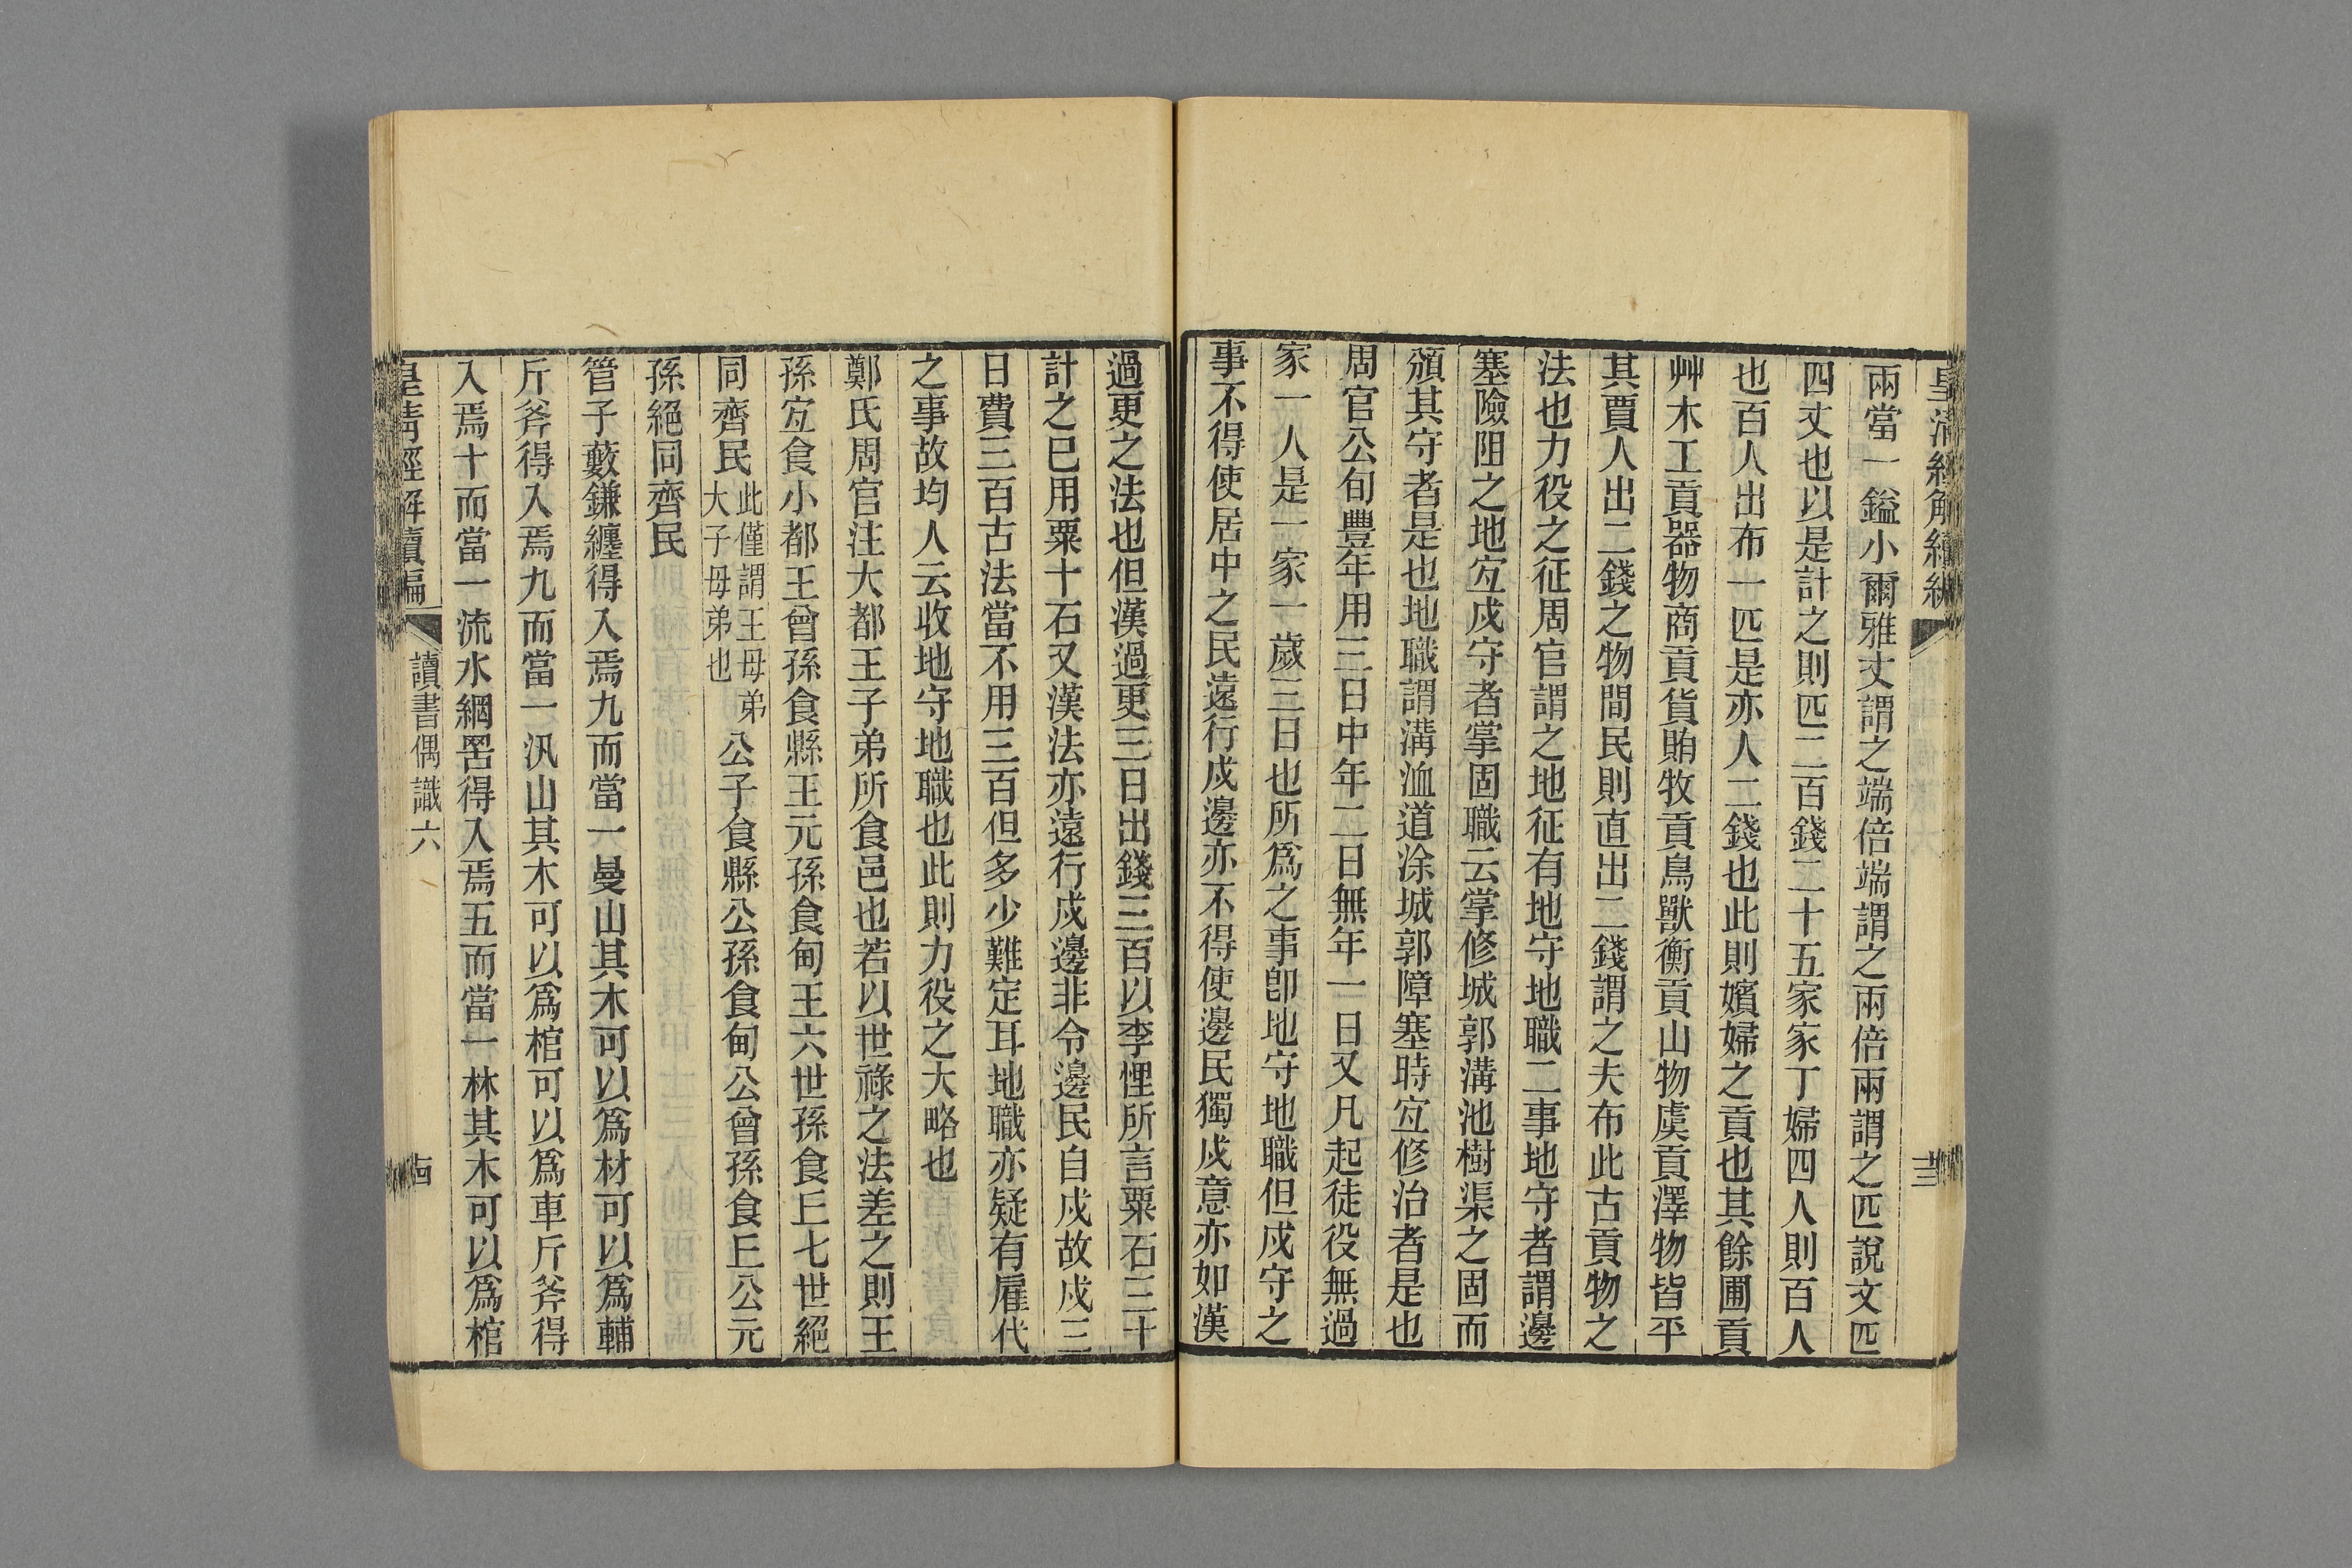 皇清經解續編
兩當一鎰小爾雅丈謂之端倍端謂之兩倍兩謂之匹說文匹
四丈也以是計之則匹二百錢二十五家家丁婦四人則百人
也百人出布一匹是亦人二錢也此則嬪婦之貢也其餘圃貢
艸木工貢器物商貢貨賄牧貢鳥獸衡貢山物虞貢澤物皆平
其賈人出二錢之物間民則直出二錢謂之夫布此古貢物之
法也力役之征周官謂之地征有地守地職二事地守者謂邊
塞險阻之地宐戍守者掌固職云掌修城郭溝池樹渠之固而
頒其守者是也地職謂溝洫道涂城郭障塞時宐修治者是也
周官公旬豐年用三日中年二日無年一日又凡起徒役無過
家一人是一家一歲三日也所爲之事卽地守地職但戍守之
事不得使居中之民遠行戍邊亦不得使邊民獨戍意亦如漢
過更之法也但漢過更三日出錢三百以李悝所言粟石三十
計之巳用粟十石又漢法亦遠行戍邊非令邊民自戍故戍三
日費三百古法當不用三百但多少難定耳地職亦疑有雇代
之事故均人云收地守地職也此則力役之大略也
鄭氏周官注大都王子弟所食邑也若以世祿之法差之則王
孫宐食小都王曾孫食縣王元孫食甸王六世孫食丘七世絕
同齊民此僅謂王母弟大子母弟也公子食縣公孫食甸公曾孫食丘公元
孫絕同齊民
管子藪鎌纏得入焉九而當一曼山其木可以爲材可以爲輔
斤斧得入焉九而當一汎山其木可以爲棺可以爲車斤斧得
入焉十而當一流水網罟得入焉五而當一林其木可以爲棺
皇清經解續編
讀書偶識六